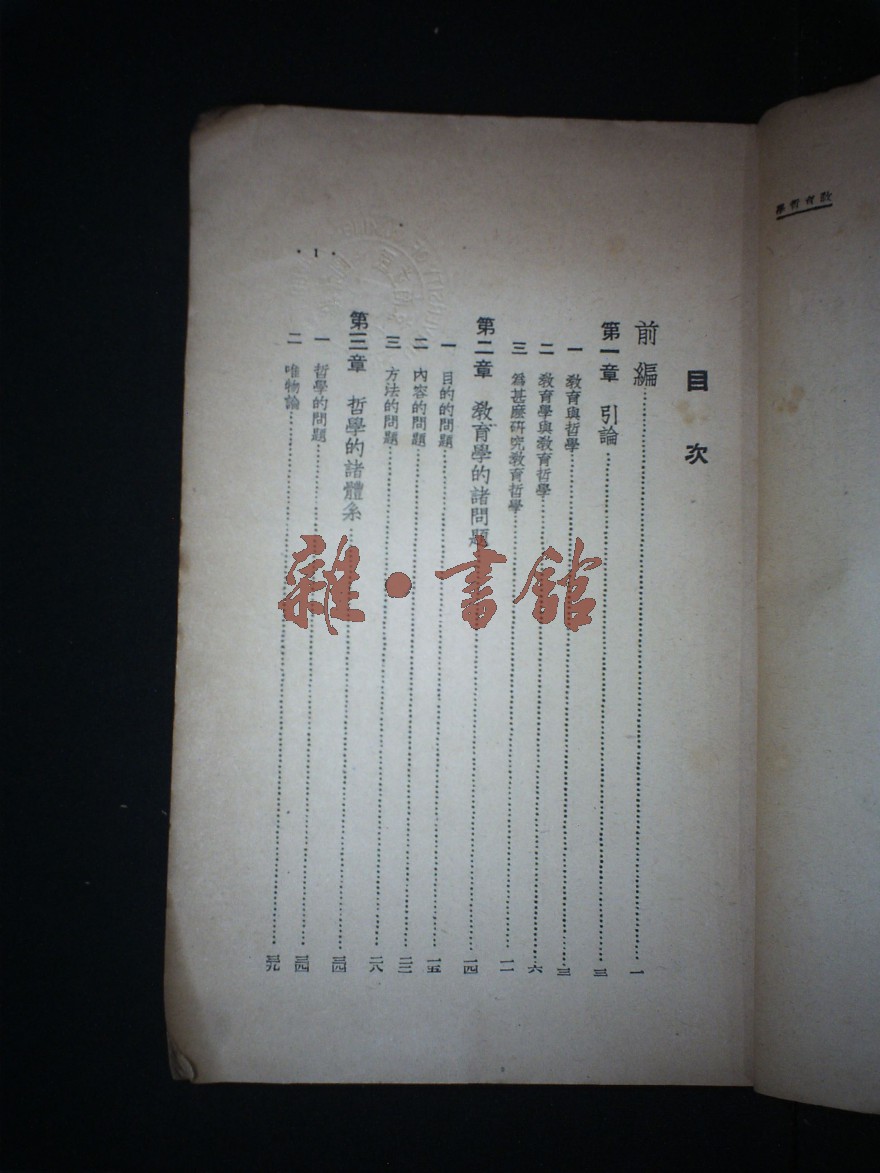 教育哲學
目次
前編一
第一章 引論三
一 教育與哲學三
二 教育學與教育哲學六
三 為甚麽研究教育哲學一一
第二章 教育學的諸問題一四
一 目的的問題一五
二 內容的問題二三
三 方法的問題二八
第三章 哲學的諸體系三四
一 哲學的問題三四
二 唯物論三九
• 1 •
雜•書館